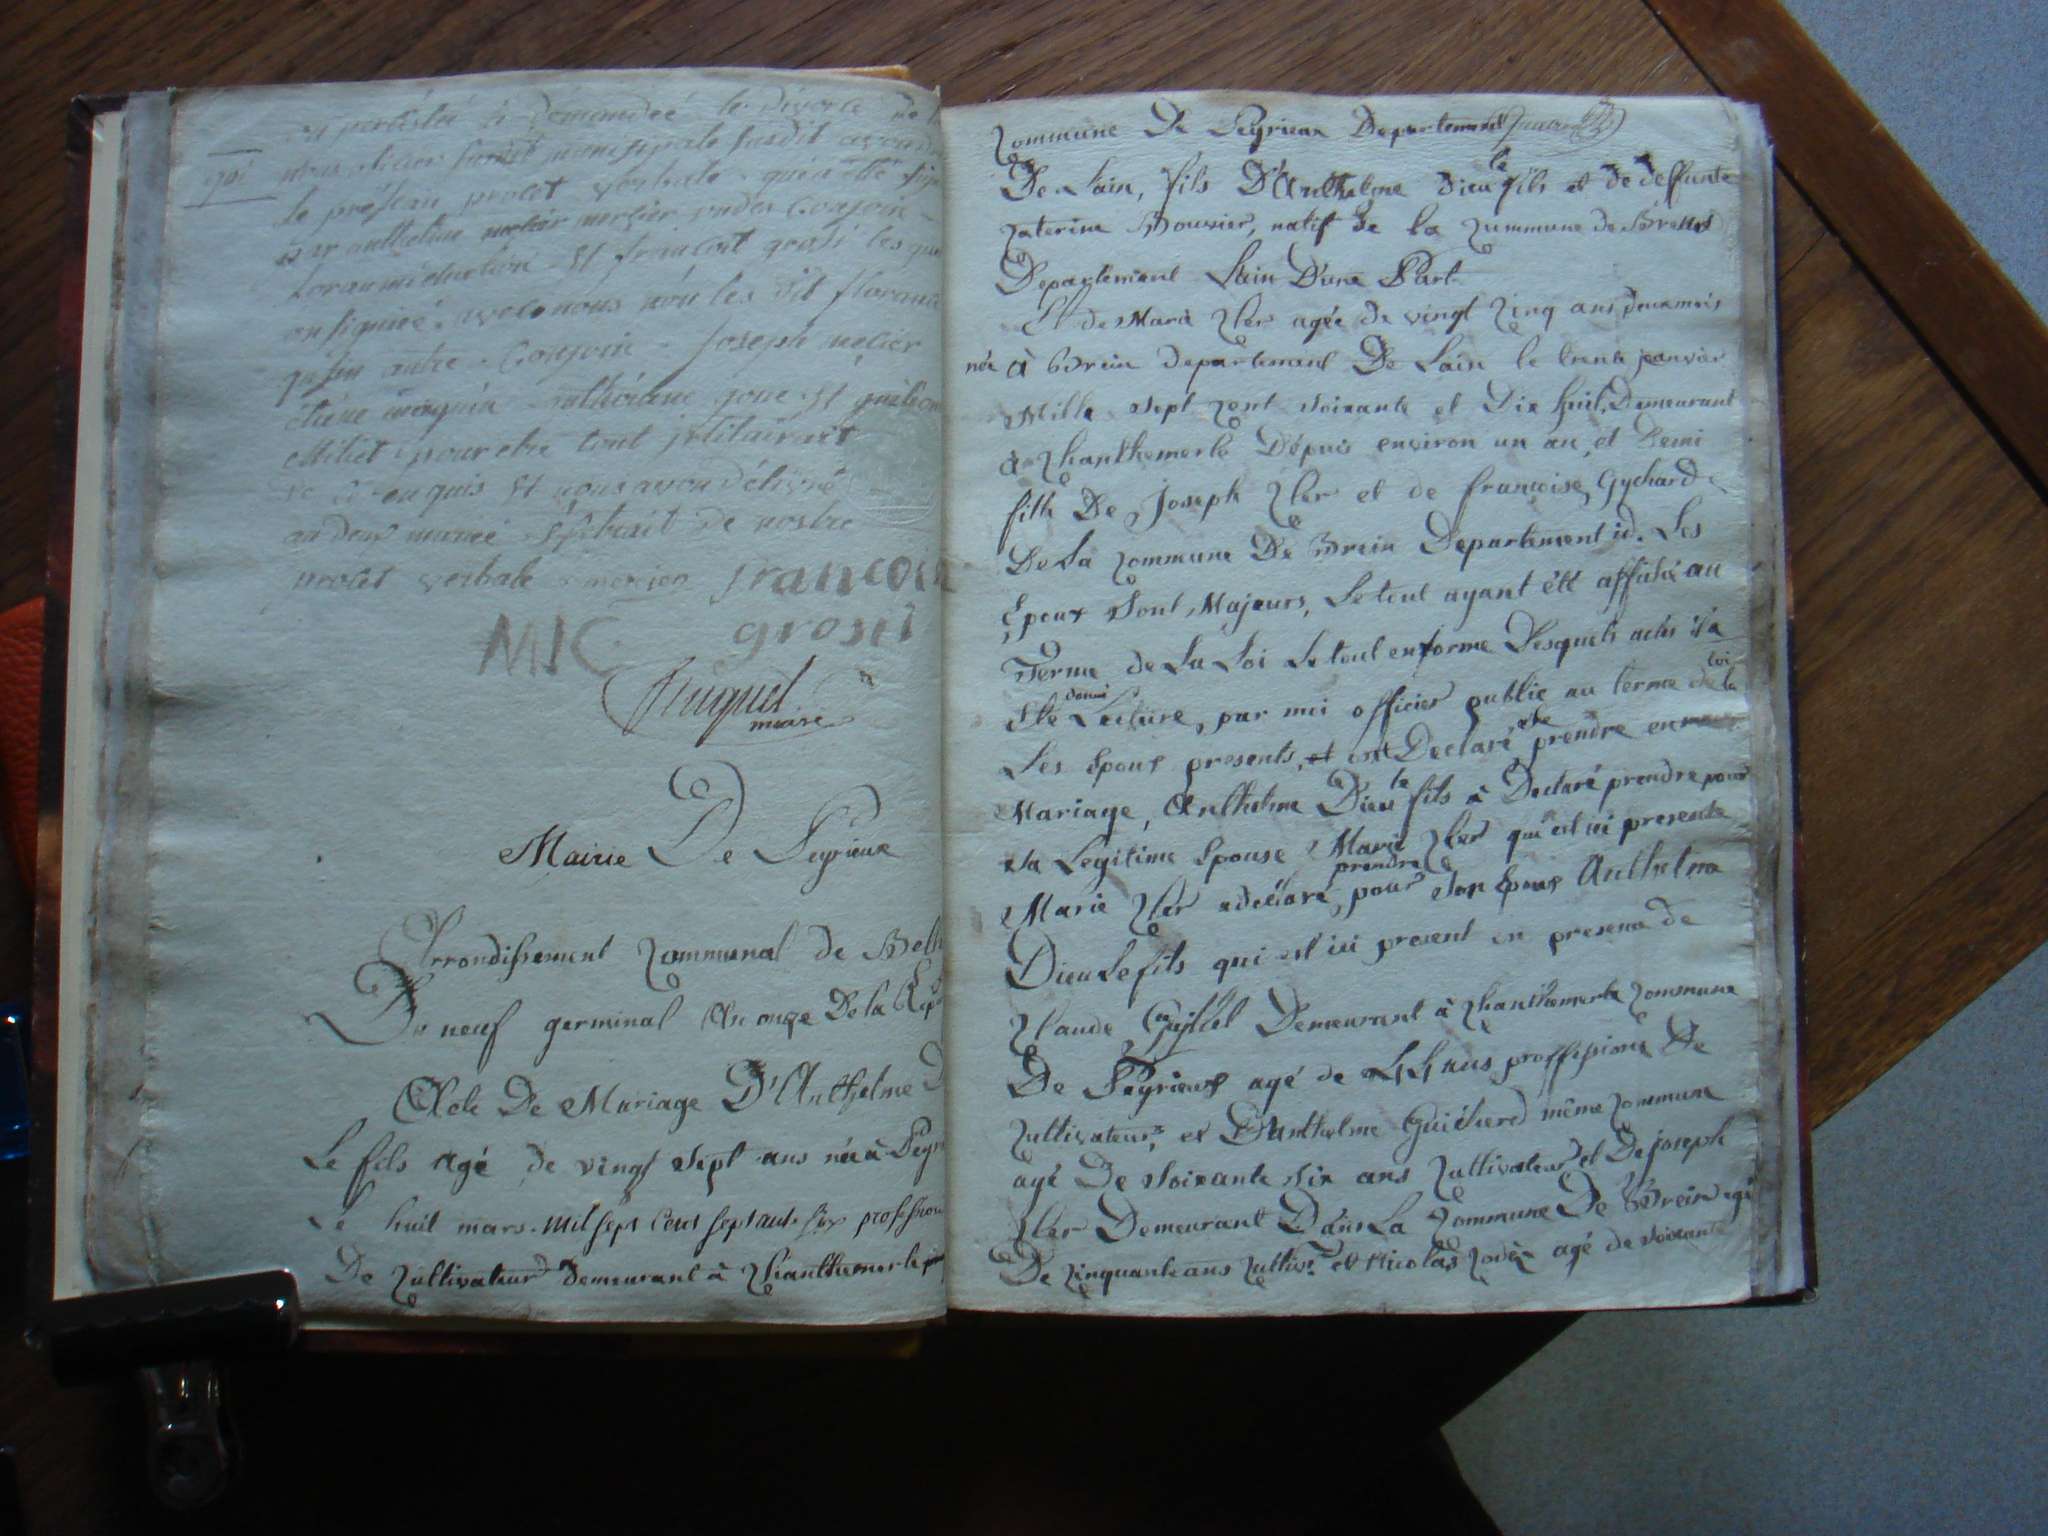 a persistée à demandée le divorce de
qoi nous officier susdit municipale susdit avon
le présean procet verbale qui a été
par anthelme mercier
et francoit grosli les
onsignée avec nous non les dit
qu'un autre Conjoin joseph melier
Milliet pour etre tout
de ce enquis et nous avon délivré
au deux marié Extrait de nostre
procet verbale francoi
MIC grosli
Huguet
maire
Mairie De Peyrieux
Arrondissement Communal de Bell
Du neuf germinal An onze De la Rep
Acte De Mariage D'Anthelme D
Le fils agé de vingt sept ans née à Peyr
Le huit mars mil sept Cent septante six profession
De Cultivateur Demeurant à Chanthemerle
Commune De Peyrieux Departement
De Lain, fils D'Anthelme Dieu le fils et de deffunte
Caterine Bouvier, natif de la Cummune de Brens
Departement Lain D'une Part
Et de Marie Cler agée de vingt Cinq ans deux mois
née à Brein Departement De Lain le trente janvier
Mille sept Cent soixante et Dix huit, Demeurant
à Chanthemerle Dépuis environ un an et Demi
fille De Joseph Cler et de francoise Gychard
De La Commune De Brein Departement id. Les
Epoux sont Majeurs, Le tout ayant été affiché au
Terme de La Loi Le tout en forme Desquels actes il a
Ete donné Lecture, par moi officier public au terme de la loi
Les Epoux presents, et ont Declaré se prendre en
Mariage, Anthelme Dieu le fils à Declaré prendre pour
sa Legitime Epouse Marie Cler qui est ici presente
Marie Cler a déclaré prendre pour son Epoux Anthelme
Dieu Le fils qui est ici present en presence de
Claude Demeurant à Chanthemerle Commune
De Peyrieux agé de 44 ans proffesione De
Cultivateur, et D'Anthelme Guicherd même Commune
agé De soixante six ans Cultivateur et De joseph
Cler Demeurant Dans La Commune De Brein agé
De Cinquante ans Cultivr et Nicolas agé de soixante